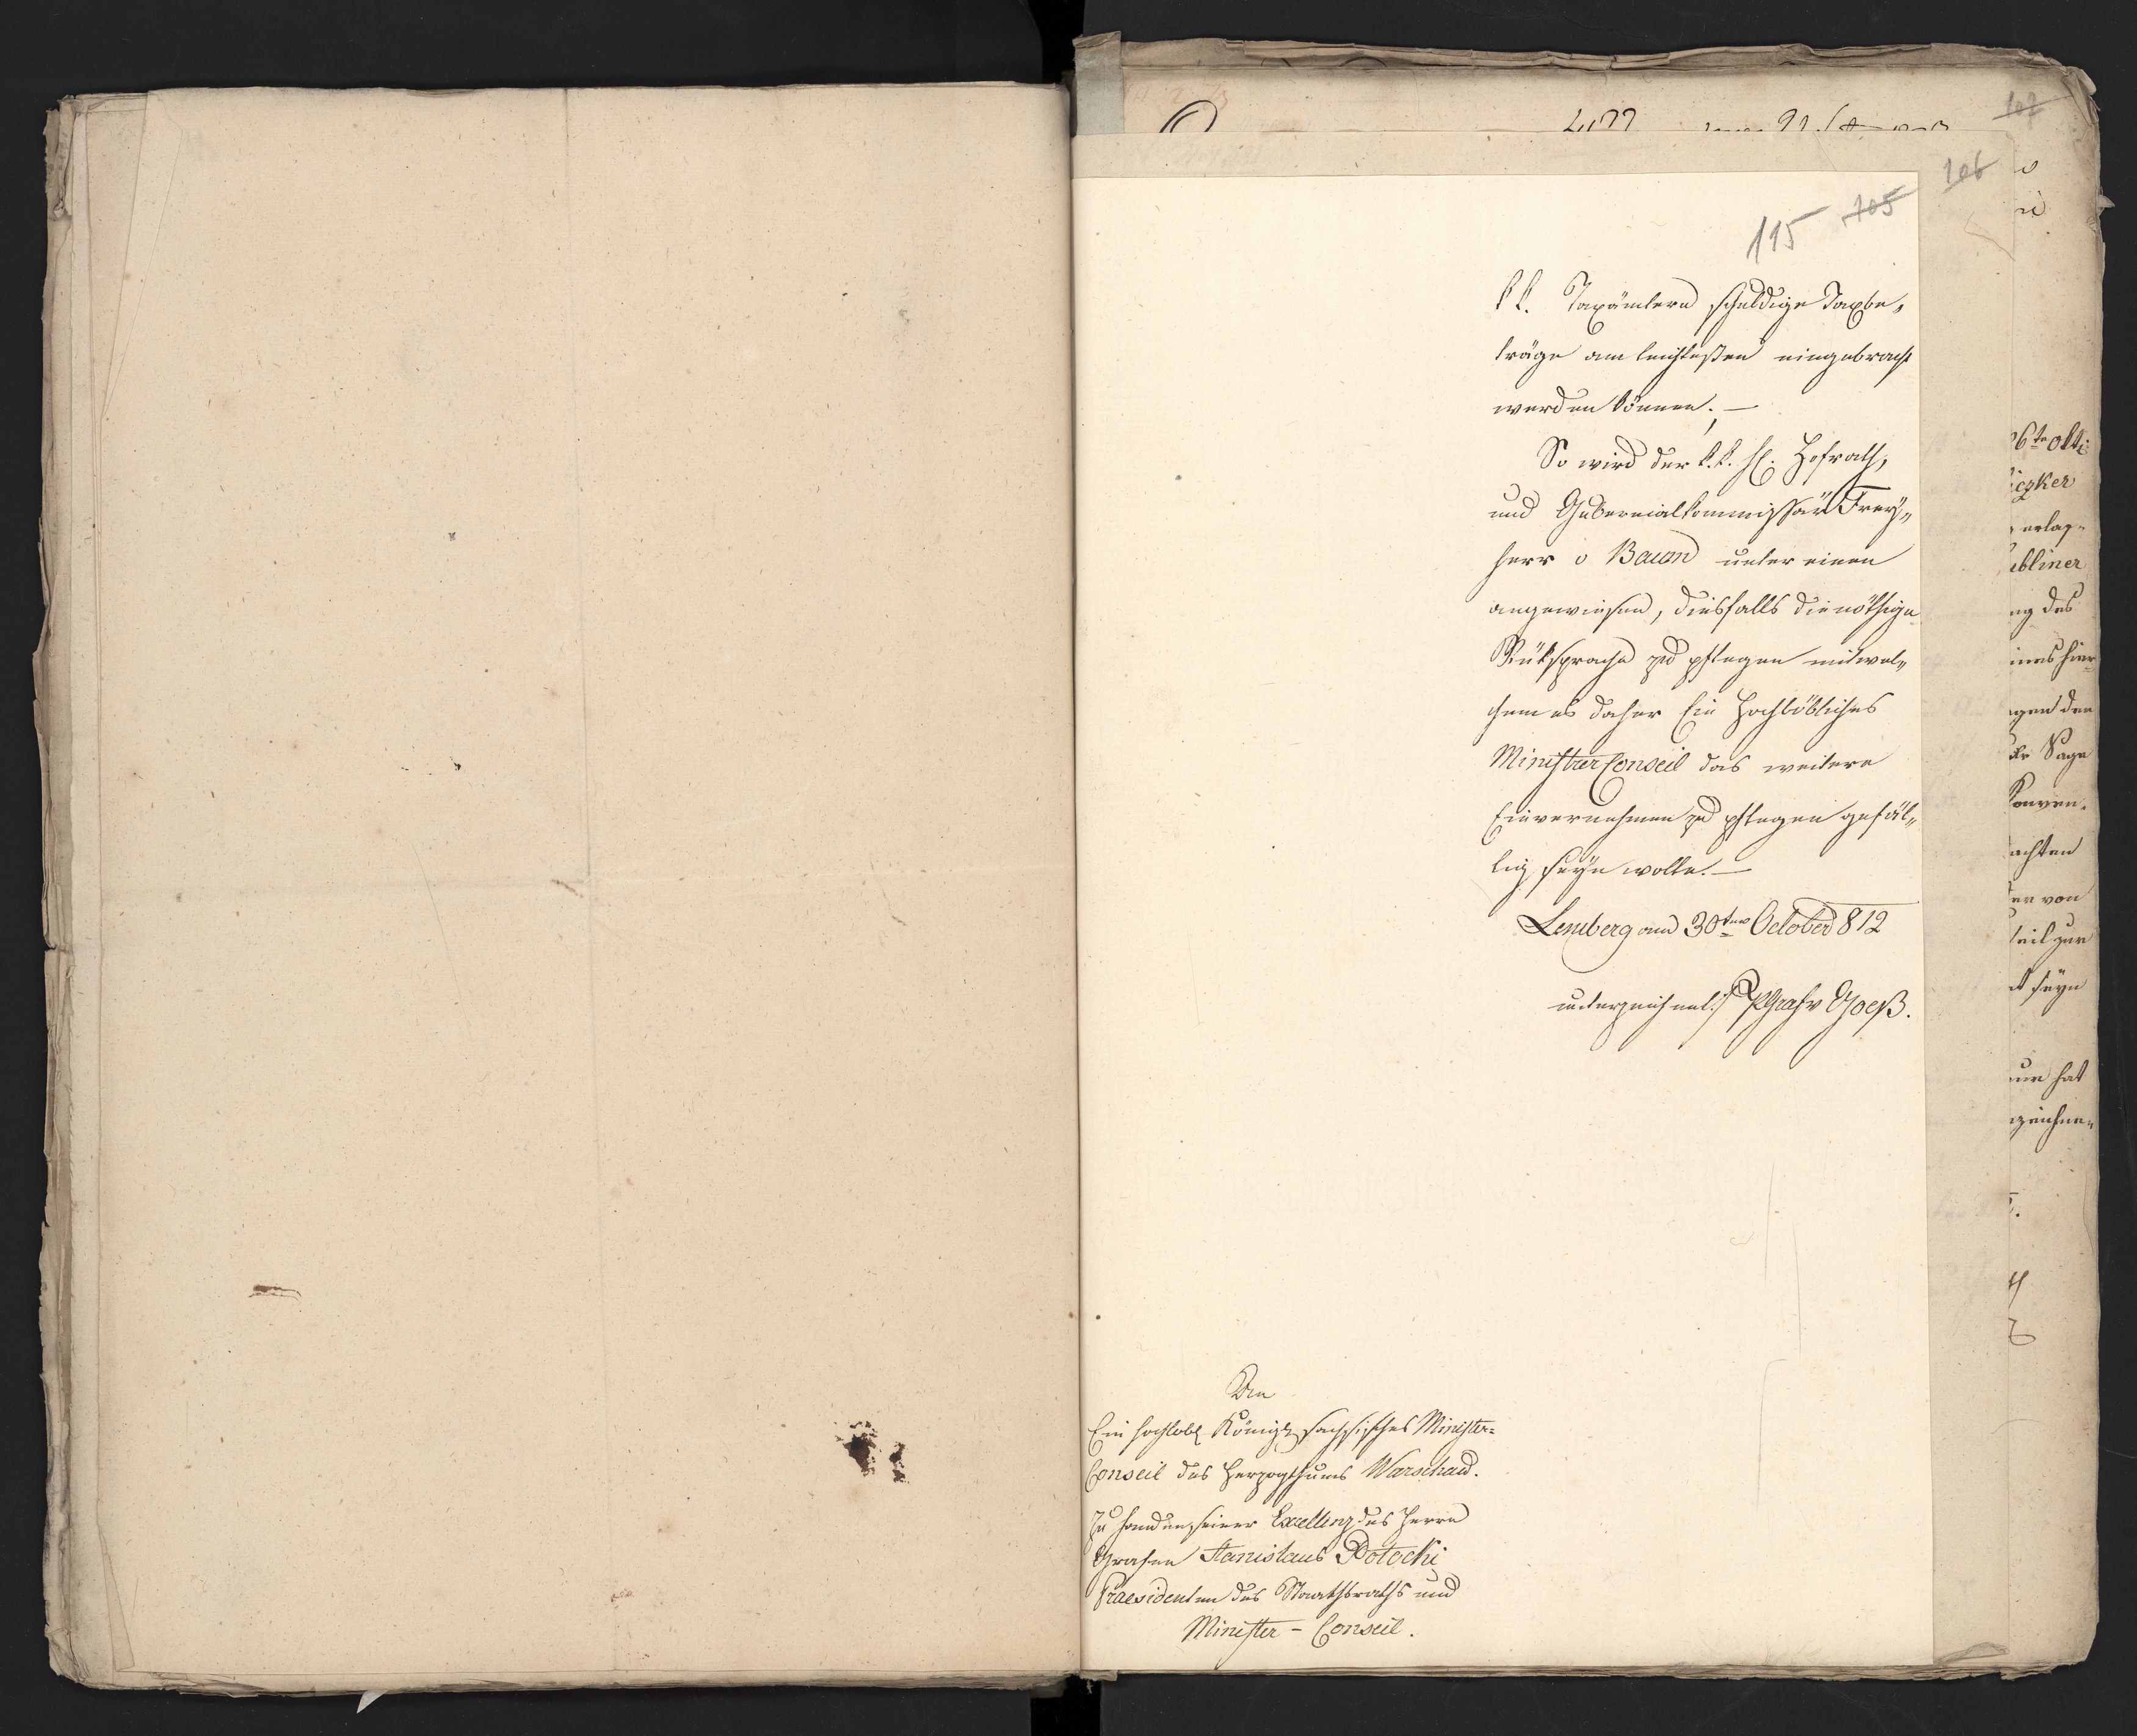 107
106
105
115
k k. Taxämtern schuldige Taxbe„
träge am leichtesten eingebracht
werden können; —
So wird der k. k. H. Hofrath,
und Gubernialkommissär Frey„
herr v Baum unter einen
angewiesen, diesfalls die nöthige
Rüksprache zu pflegen mit wel„
chem es daher Ein Hochlöbliches
Minister Conseil das weitere
Einvernehmen zu pflegen gefäl„
lig seyn wolle. —
Lemberg am 30ten October 812
unterzeichnet:/ PGraf v Goeß.
An
Ein hochlobl Königl. sachsisches Minister=
Conseil des Herzogthums Warschau.
Zu Handen seiner Excellenz des Herrn
Grafen Stanislaus Potocki
Praesidenten des Staathsraths und
Minister – Conseil.
6te oktr
iczker
erlag„
ubliner
ng des
ines hier
gen den
Sage
Konven.
achten
er von
seil zur
t seyn
hat
zeichne„